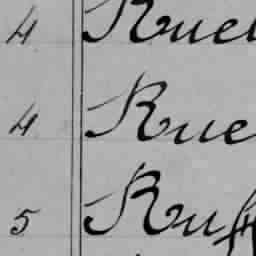 4 Ruel
4 Rue
5 Ruff